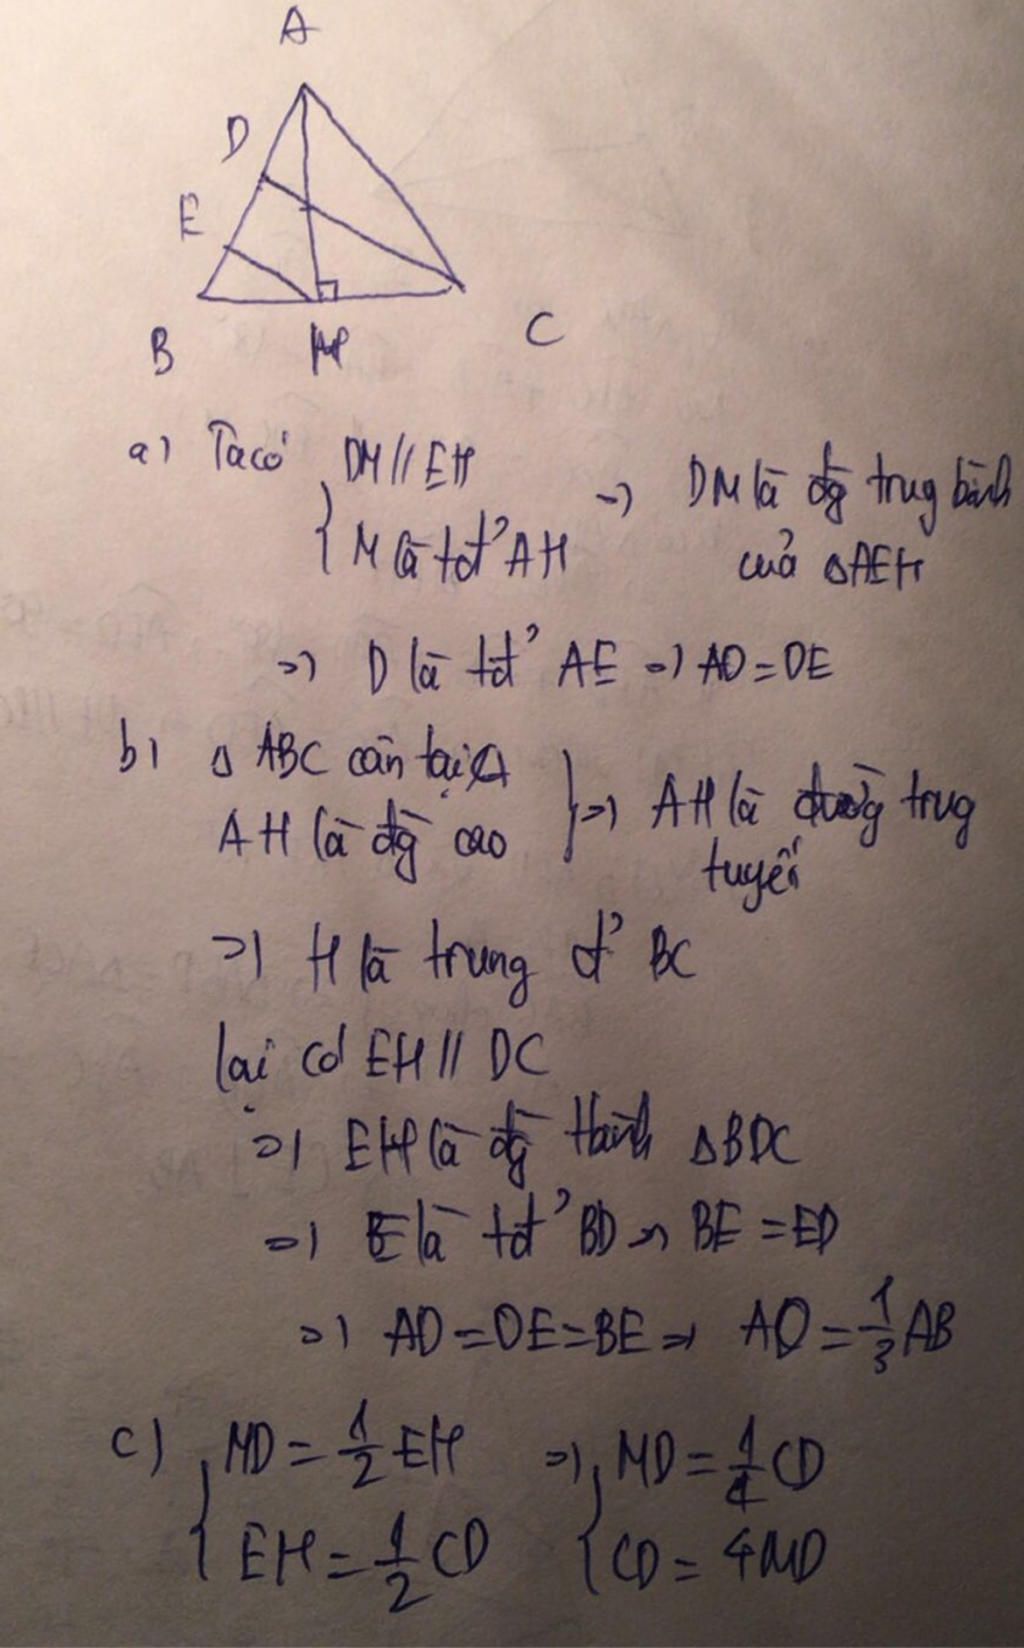 A
D
E
B
H
C
a) Ta có DM // EH
{ M là tđ' AH => DM là đg trug bình
của ΔAEH
=> D là tđ' AE => AD = DE
b) Δ ABC cân tại A
AH là đg cao } => AH là đường trug
tuyến
=> H là trung đ' BC
lại có EH // DC
=> EH là đg Δ BDC
=> E là tđ' BD => BE = ED
=> AD = DE = BE => AD = 1/3 AB
c) { MD = 1/2 EH => { MD = 1/4 CD
EH = 1/2 CD CD = 4MD